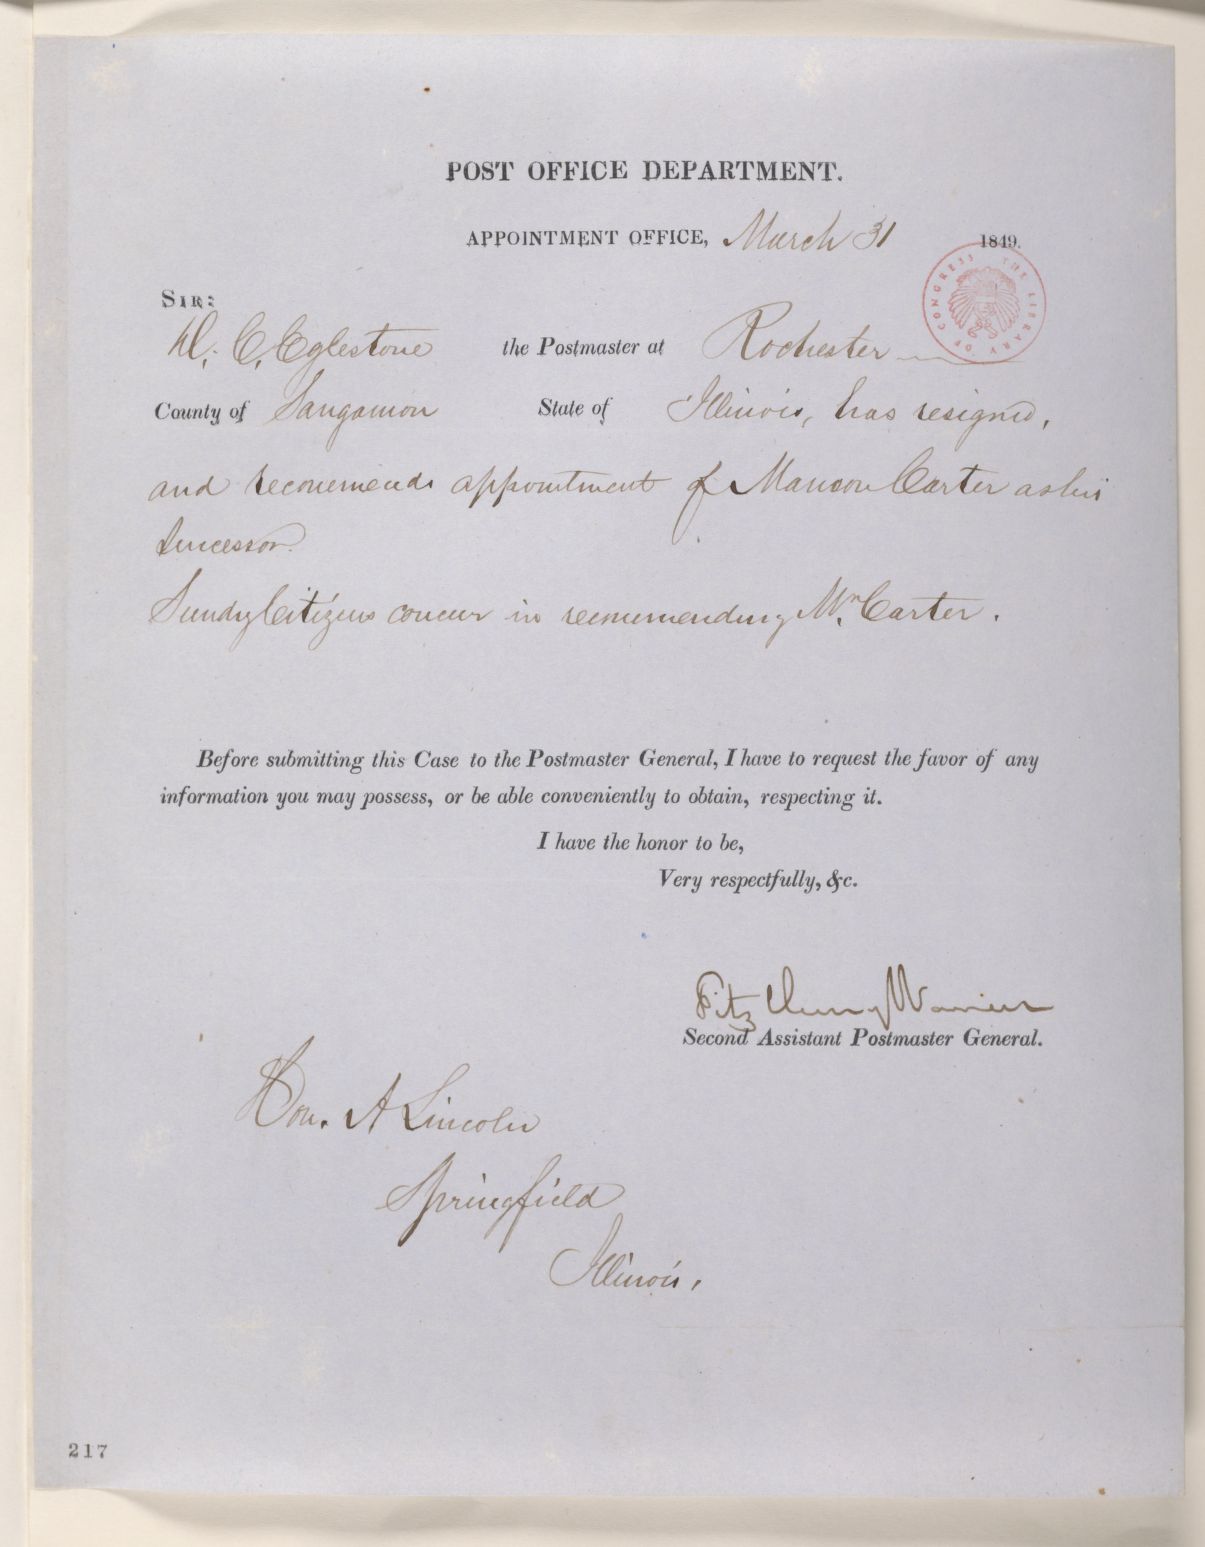 POST OFFICE DEPARTMENT.
APPOINTMENT OFFICE, March 31 1849.
THE LIBRARY OF CONGRESS
SIR:
C. Eglestone the Postmaster at Rochester
County of Sangamon State of Illinois, has resigned,
and recommends appointment of Manson Carter as his
Successor.
Sundry Citizens concur in recommending Mr. Carter.
Before submitting this Case to the Postmaster General, I have to request the favor of any
information you may possess, or be able conveniently to obtain, respecting it.
I have the honor to be,
Very respectfully, &c.
Fitz Henry Warren
Second Assistant Postmaster General.
Hon. A Lincoln
Springfield
Illinois,
217